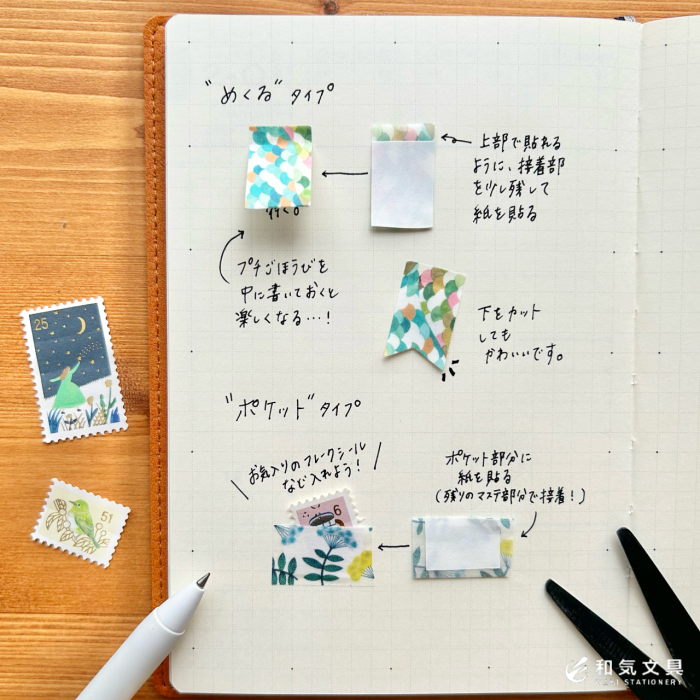 "めくる"タイプ
上部で貼れる
ように、接着部
を少し残して
紙を貼る
行く。
プチごほうびを
中に書いておくと
楽しくなる…!
下をカット
しても
かわいいです。
"ポケット"タイプ
お気入りのフレークシール
など入れよう!
ポケット部分に
紙を貼る
(残りのマステ部分で接着!)
25
51
6
和気文具
STATIONERY